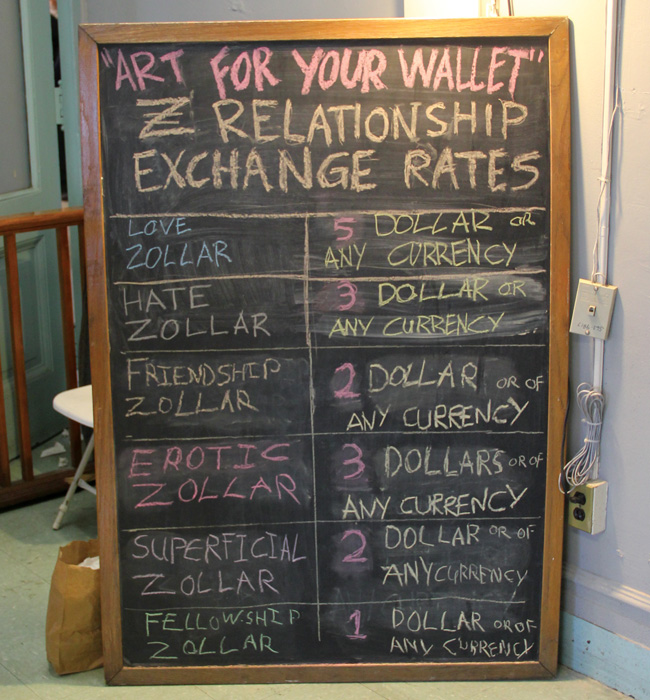 "ART FOR YOUR WALLET"
Z RELATIONSHIP
EXCHANGE RATES
LOVE
ZOLLAR
5 DOLLAR OR
ANY CURRENCY
HATE
ZOLLAR
3 DOLLAR OR
ANY CURRENCY
FRIENDSHIP
ZOLLAR
2 DOLLAR OR OF
ANY CURRENCY
EROTIC
ZOLLAR
3 DOLLARS OR OF
ANY CURRENCY
SUPERFICIAL
ZOLLAR
2 DOLLAR OR OF
ANY CURRENCY
FELLOWSHIP
ZOLLAR
1 DOLLAR OR OF
ANY CURRENCY